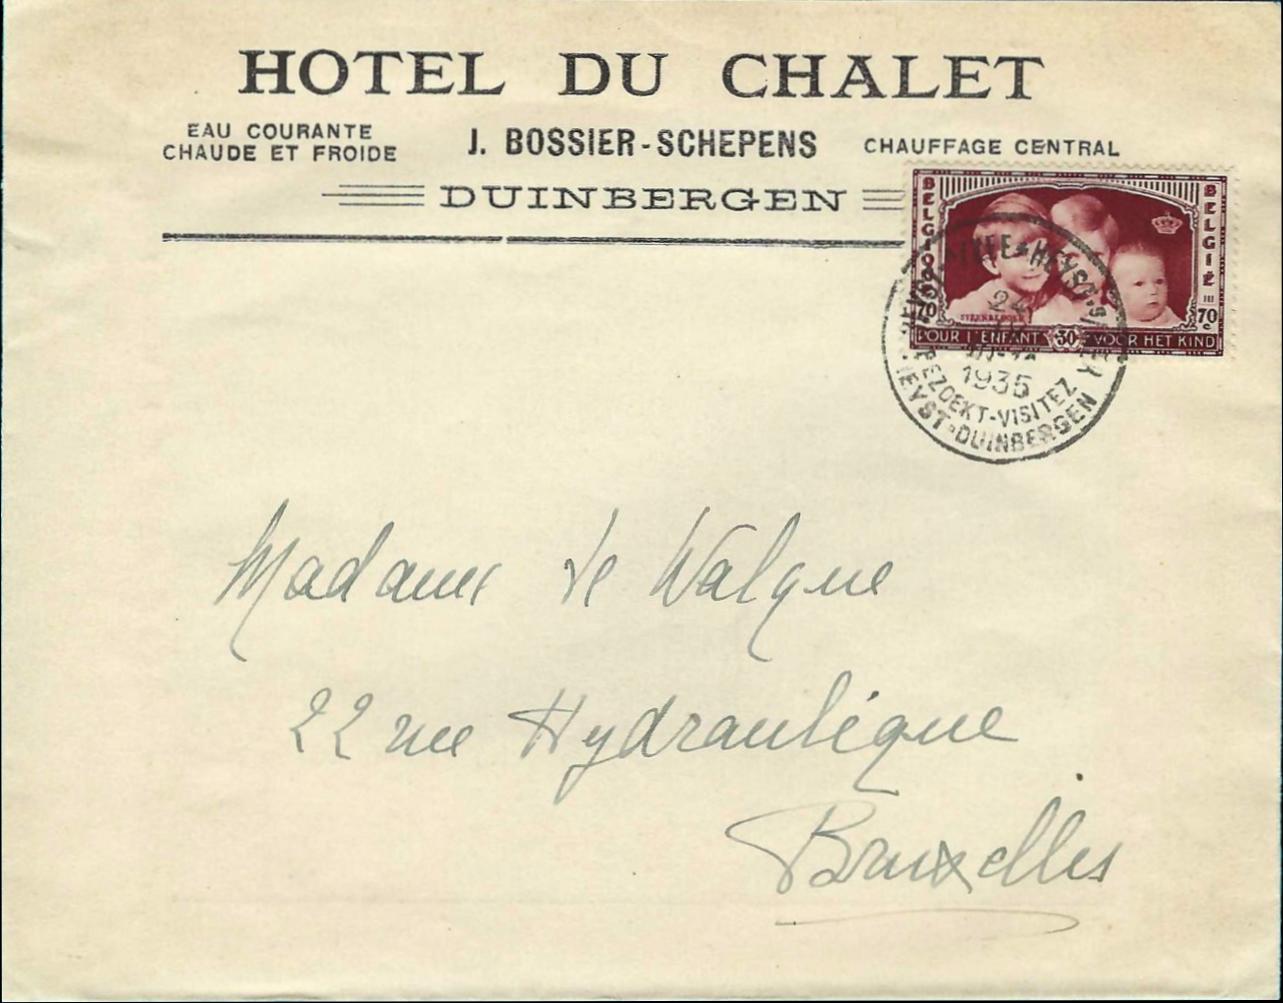 HOTEL DU CHALET
EAU COURANTE
CHAUDE ET FROIDE
J. BOSSIER-SCHEPENS
CHAUFFAGE CENTRAL
DUINBERGEN
BELGIQUE
BELGIË
70
70 c
POUR L'ENFANT 30 VOOR HET KIND
HEYST
24
1935
BEZOEKT-VISITEZ
HEYST-DUINBERGEN
Madame de Walque
22 rue Hydraulique
Bruxelles